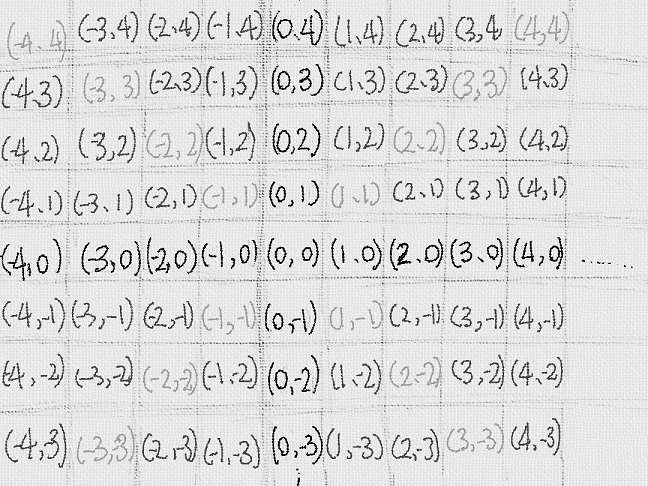 (-4,4) (-3,4) (-2,4) (-1,4) (0,4) (1,4) (2,4) (3,4 (4,4)
(-4,3) (-3,3) (-2,3) (-1,3) (0,3) (1,3) (2,3) (3,3) (4,3)
(-4,2) (-3,2) (-2,2) (-1,2) (0,2) (1,2) (2,2) (3,2) (4,2)
(-4,1) (-3,1) (-2,1) (-1,1) (0,1) (1,1) (2,1) (3,1) (4,1)
(-4,0) (-3,0) (-2,0) (-1,0) (0,0) (1,0) (2,0) (3,0) (4,0) ......
(-4,-1) (-3,-1) (-2,-1) (-1,-1) (0,-1) (1,-1) (2,-1) (3,-1) (4,-1)
(-4,-2) (-3,-2) (-2,-2) (-1,-2) (0,-2) (1,-2) (2,-2) (3,-2) (4,-2)
(-4,-3) (-3,-3) (-2,-3) (-1,-3) (0,-3) (1,-3) (2,-3) (3,-3) (4,-3)